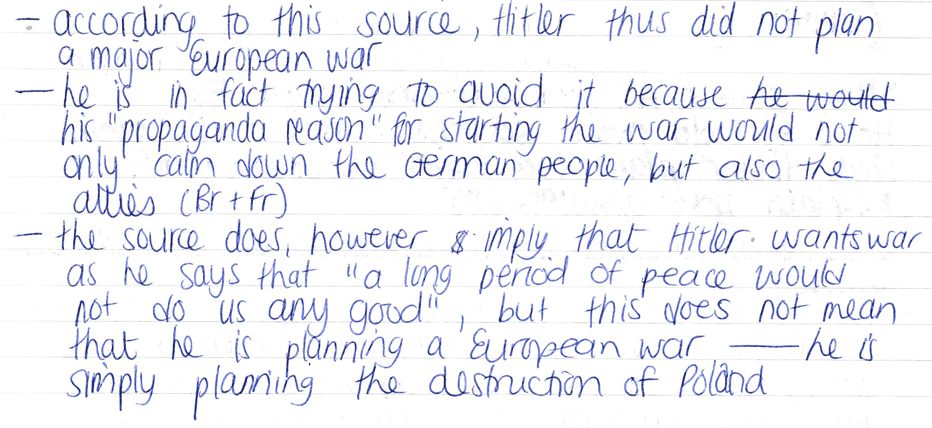 - according to this source, Hitler thus did not plan
a major European war
- he is in fact trying to avoid it because he would
his "propaganda reason" for starting the war would not
only calm down the German people, but also the
allies (Br + Fr)
- the source does, however imply that Hitler wants war
as he says that "a long period of peace would
not do us any good", but this does not mean
that he is planning a European war — he is
simply planning the destruction of Poland